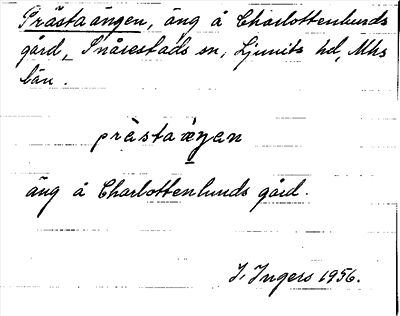 Prästaängen, äng å Charlottenlunds
gård, Snårestads sn, Ljunits hd, Mhs
län.
prȧ̀staæŋen
äng å Charlottenlunds gård.
I. Ingers 1956.